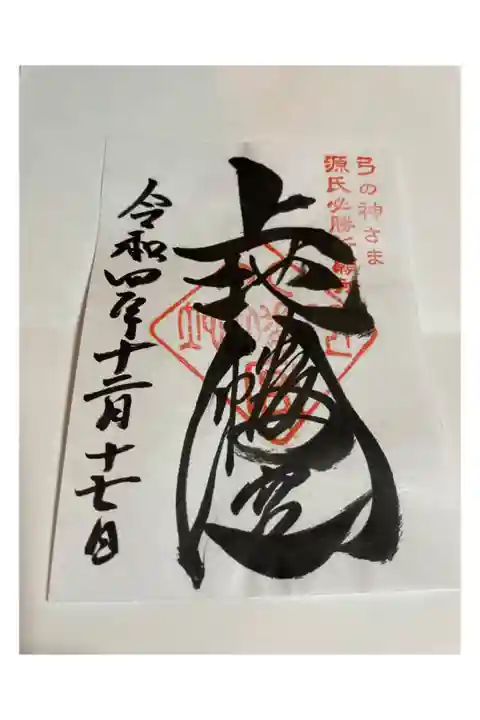 弓の神さま
源氏必勝
上地八幡宮
令和四年十二月十七日